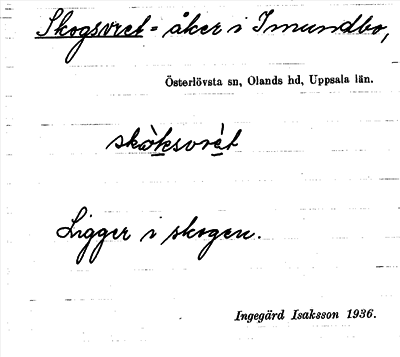 Skogsvret = åker i Imundbo,
Österlövsta sn, Olands hd, Uppsala län.
skòksvrèt
Ligger i skogen.
Ingegärd Isaksson 1936.